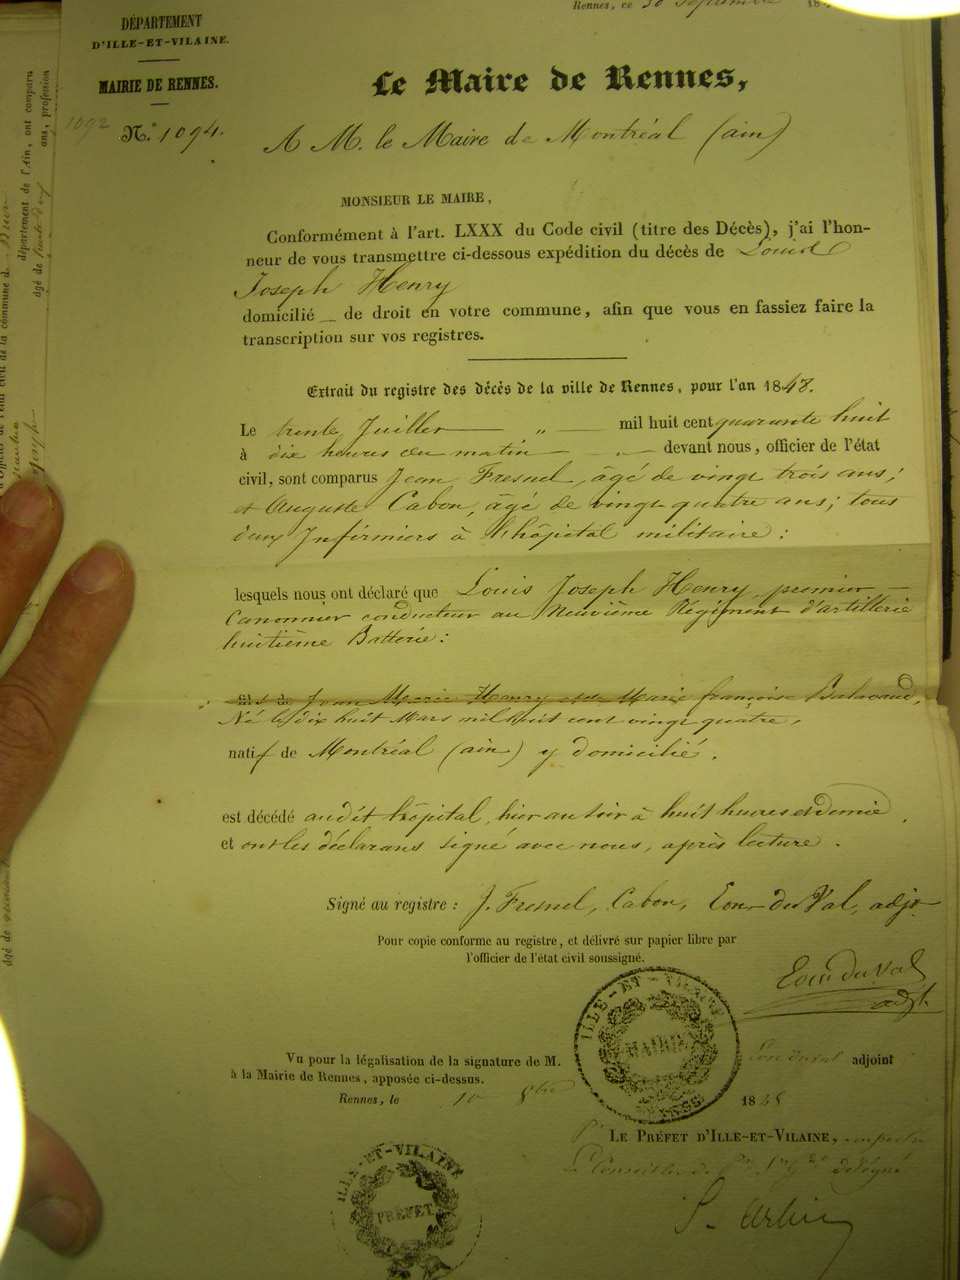 Rennes, ce 30 Septembre 18
DÉPARTEMENT
D'ILLE-ET-VILAINE.
MAIRIE DE RENNES.
1092 N.° 1094.
Le Maire de Rennes,
A M. le Maire de Montréal (ain)
MONSIEUR LE MAIRE,
Conformément à l'art. LXXX du Code civil (titre des Décès), j'ai l'hon-
neur de vous transmettre ci-dessous expédition du décès de Louis
Joseph Henry
domicilié de droit en votre commune, afin que vous en fassiez faire la
transcription sur vos registres.
Extrait du registre des décès de la ville de Rennes, pour l'an 1848.
Le trente Juillet — „ — mil huit cent quarante huit
à dix heures du matin — devant nous, officier de l'état
civil, sont comparus Jean Fresnel, âgé de vingt trois ans;
et Auguste Cabon, âgé de vingt quatre ans; tous
deux Infirmiers à l'hôpital militaire:
lesquels nous ont déclaré que Louis Joseph Henry, premier
Canonnier conducteur au Neuvième Régiment d'artillerie
huitième Batterie:
fils de Jean Marie Henry et de Marie françoise
Né le dix huit Mars mil huit cent vingt quatre,
natif de Montréal (ain) y domicilié.
est décédé audit hôpital, hier au soir à huit heures et demie,
et ont les déclarans signé avec nous, après lecture.
Signé au registre: J. Fresnel, Cabon, Eon du Val, adjt
Pour copie conforme au registre, et délivré sur papier libre par
l'officier de l'état civil soussigné.
Eon du Val
adjt.
ILLE-ET-VILAINE
MAIRIE
RENNES
Vu pour la légalisation de la signature de M. Eon duval adjoint
à la Mairie de Rennes, apposée ci-dessus.
Rennes, le 10 8bre 1848
LE PRÉFET D'ILLE-ET-VILAINE,
Le Conseiller de délégué
ILLE-ET-VILAINE
PRÉFET
département de l'Ain, ont comparu
ans, profession
âgé de
âgé de